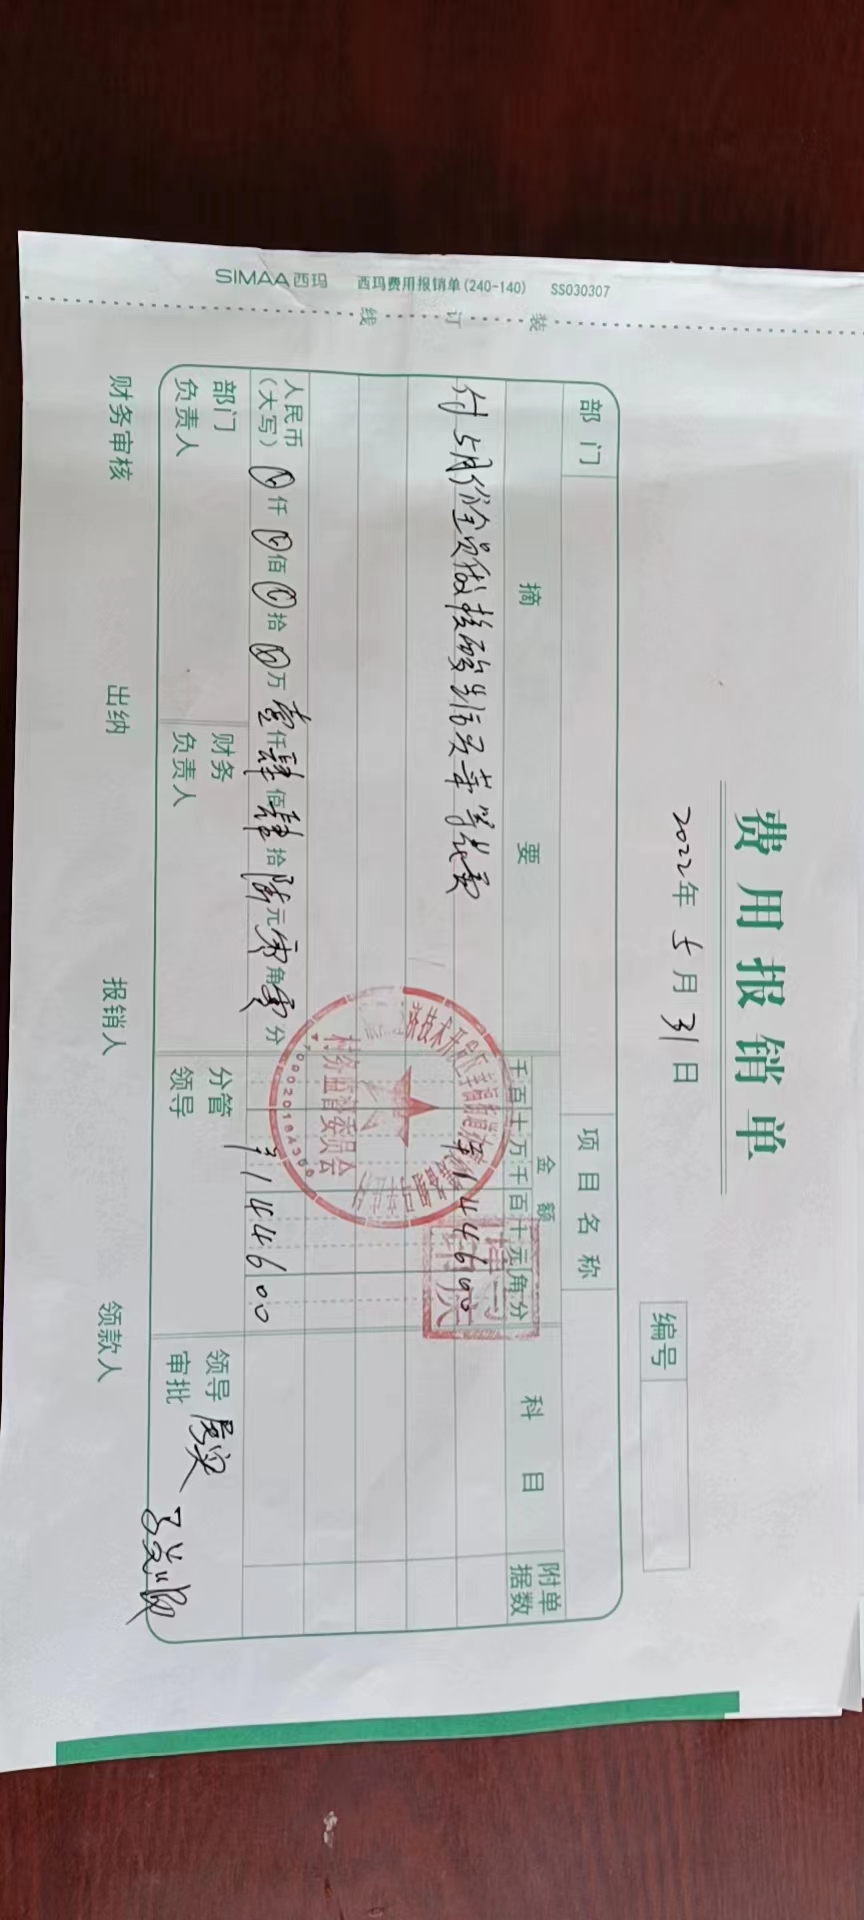 费用报销单
2022年5月31日
编号
部门
项目名称
摘要
金额
科目
附单据数
千百十万千百十元角分
付5月份全员做核酸生活买菜等花费
¥144600
人民币(大写) 仟 佰 拾 万壹仟肆佰肆拾陆元零角零分
¥144600
部门负责人
财务负责人
分管领导
领导审批
财务审核
出纳
报销人
领款人
村务监督委员会
装订线
SIMAA西玛 西玛费用报销单(240-140) SS030307